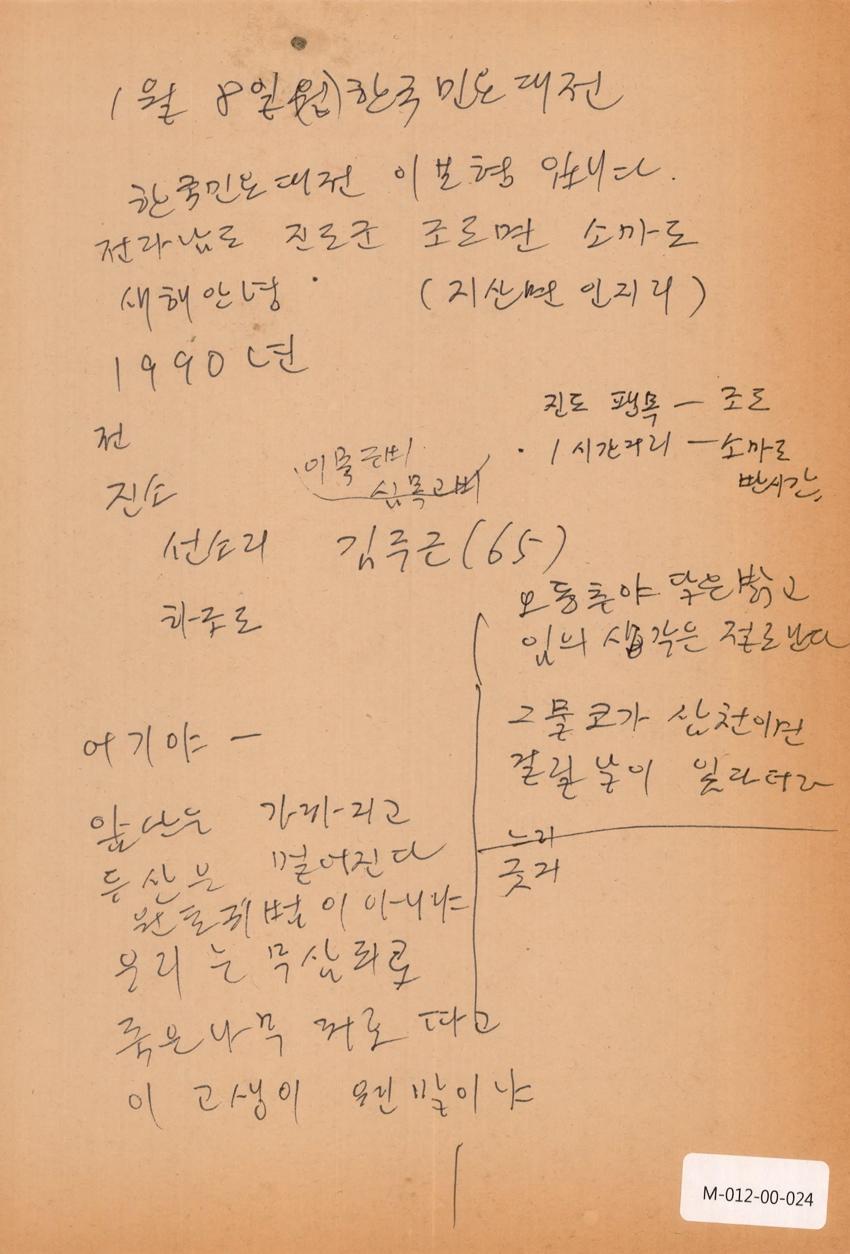 1월 8일(월) 한국민요대전
한국민요대전 이보형 입니다.
전라남도 진도군 조도면 소마도
새해안녕 (지산면 인지리)
1990년
전
진소
선소리 김주근(65)
하조도
진도 팽목 — 조도
1시간거리 — 소마도
반시간
오동추야 달은밝고
임의 생각은 절로난다
그물코가 삼천이면
걸릴 날이 있다더라
느리
궂거
어기야 —
앞산은 가까지고
등산은 멀어진다
원도귀법이 아니냐
우리는 무삼죄로
죽은나무 거로 따고
이 고생이 웬말이냐
M-012-00-024